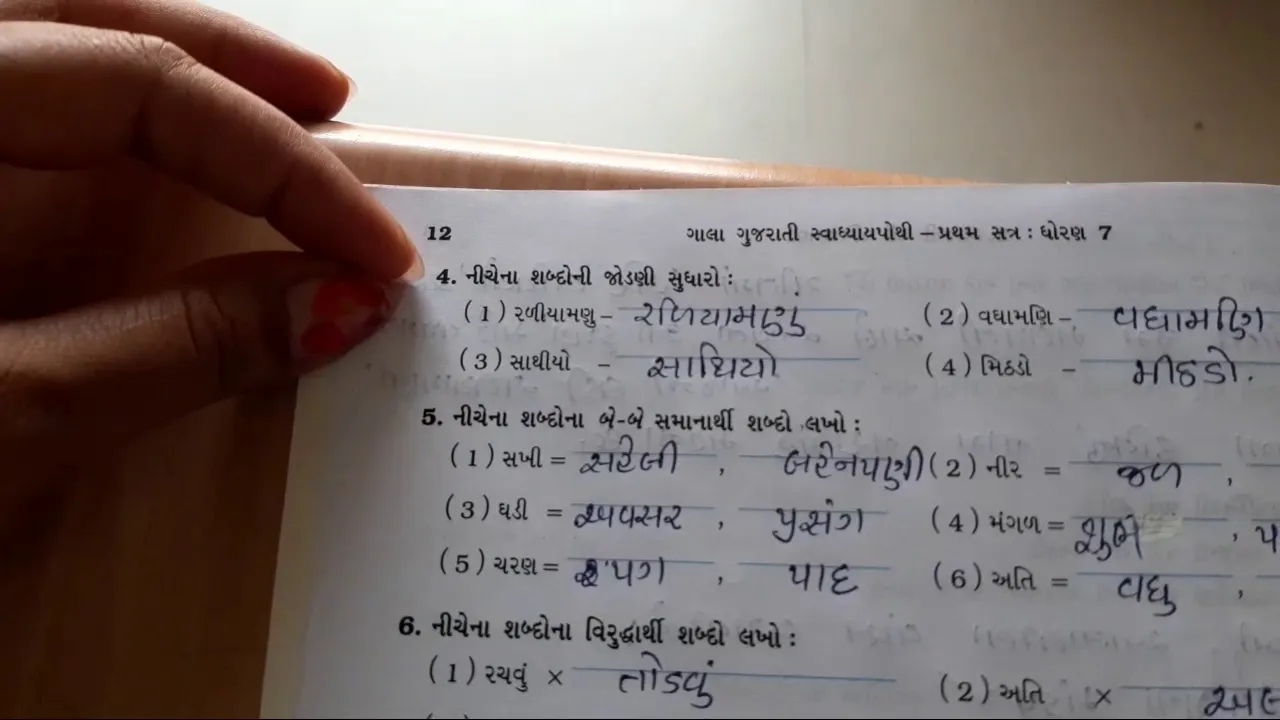 12 ગાલા ગુજરાતી સ્વાધ્યાયપોથી – પ્રથમ સત્ર : ધોરણ 7
4. નીચેના શબ્દોની જોડણી સુધારો :
(1) રળીયામણુ – રળિયામણું (2) વધામણિ – વધામણિ
(3) સાથીયો – સાથિયો (4) મિઠડો – મીઠડો.
5. નીચેના શબ્દોના બે-બે સમાનાર્થી શબ્દો લખો :
(1) સખી = સહેલી , બહેનપણી (2) નીર = જળ ,
(3) ઘડી = અવસર , પ્રસંગ (4) મંગળ = શુભ ,
(5) ચરણ = પગ , પાદ (6) અતિ = વધુ ,
6. નીચેના શબ્દોના વિરુદ્ધાર્થી શબ્દો લખો :
(1) રચવું × તોડવું (2) અતિ ×